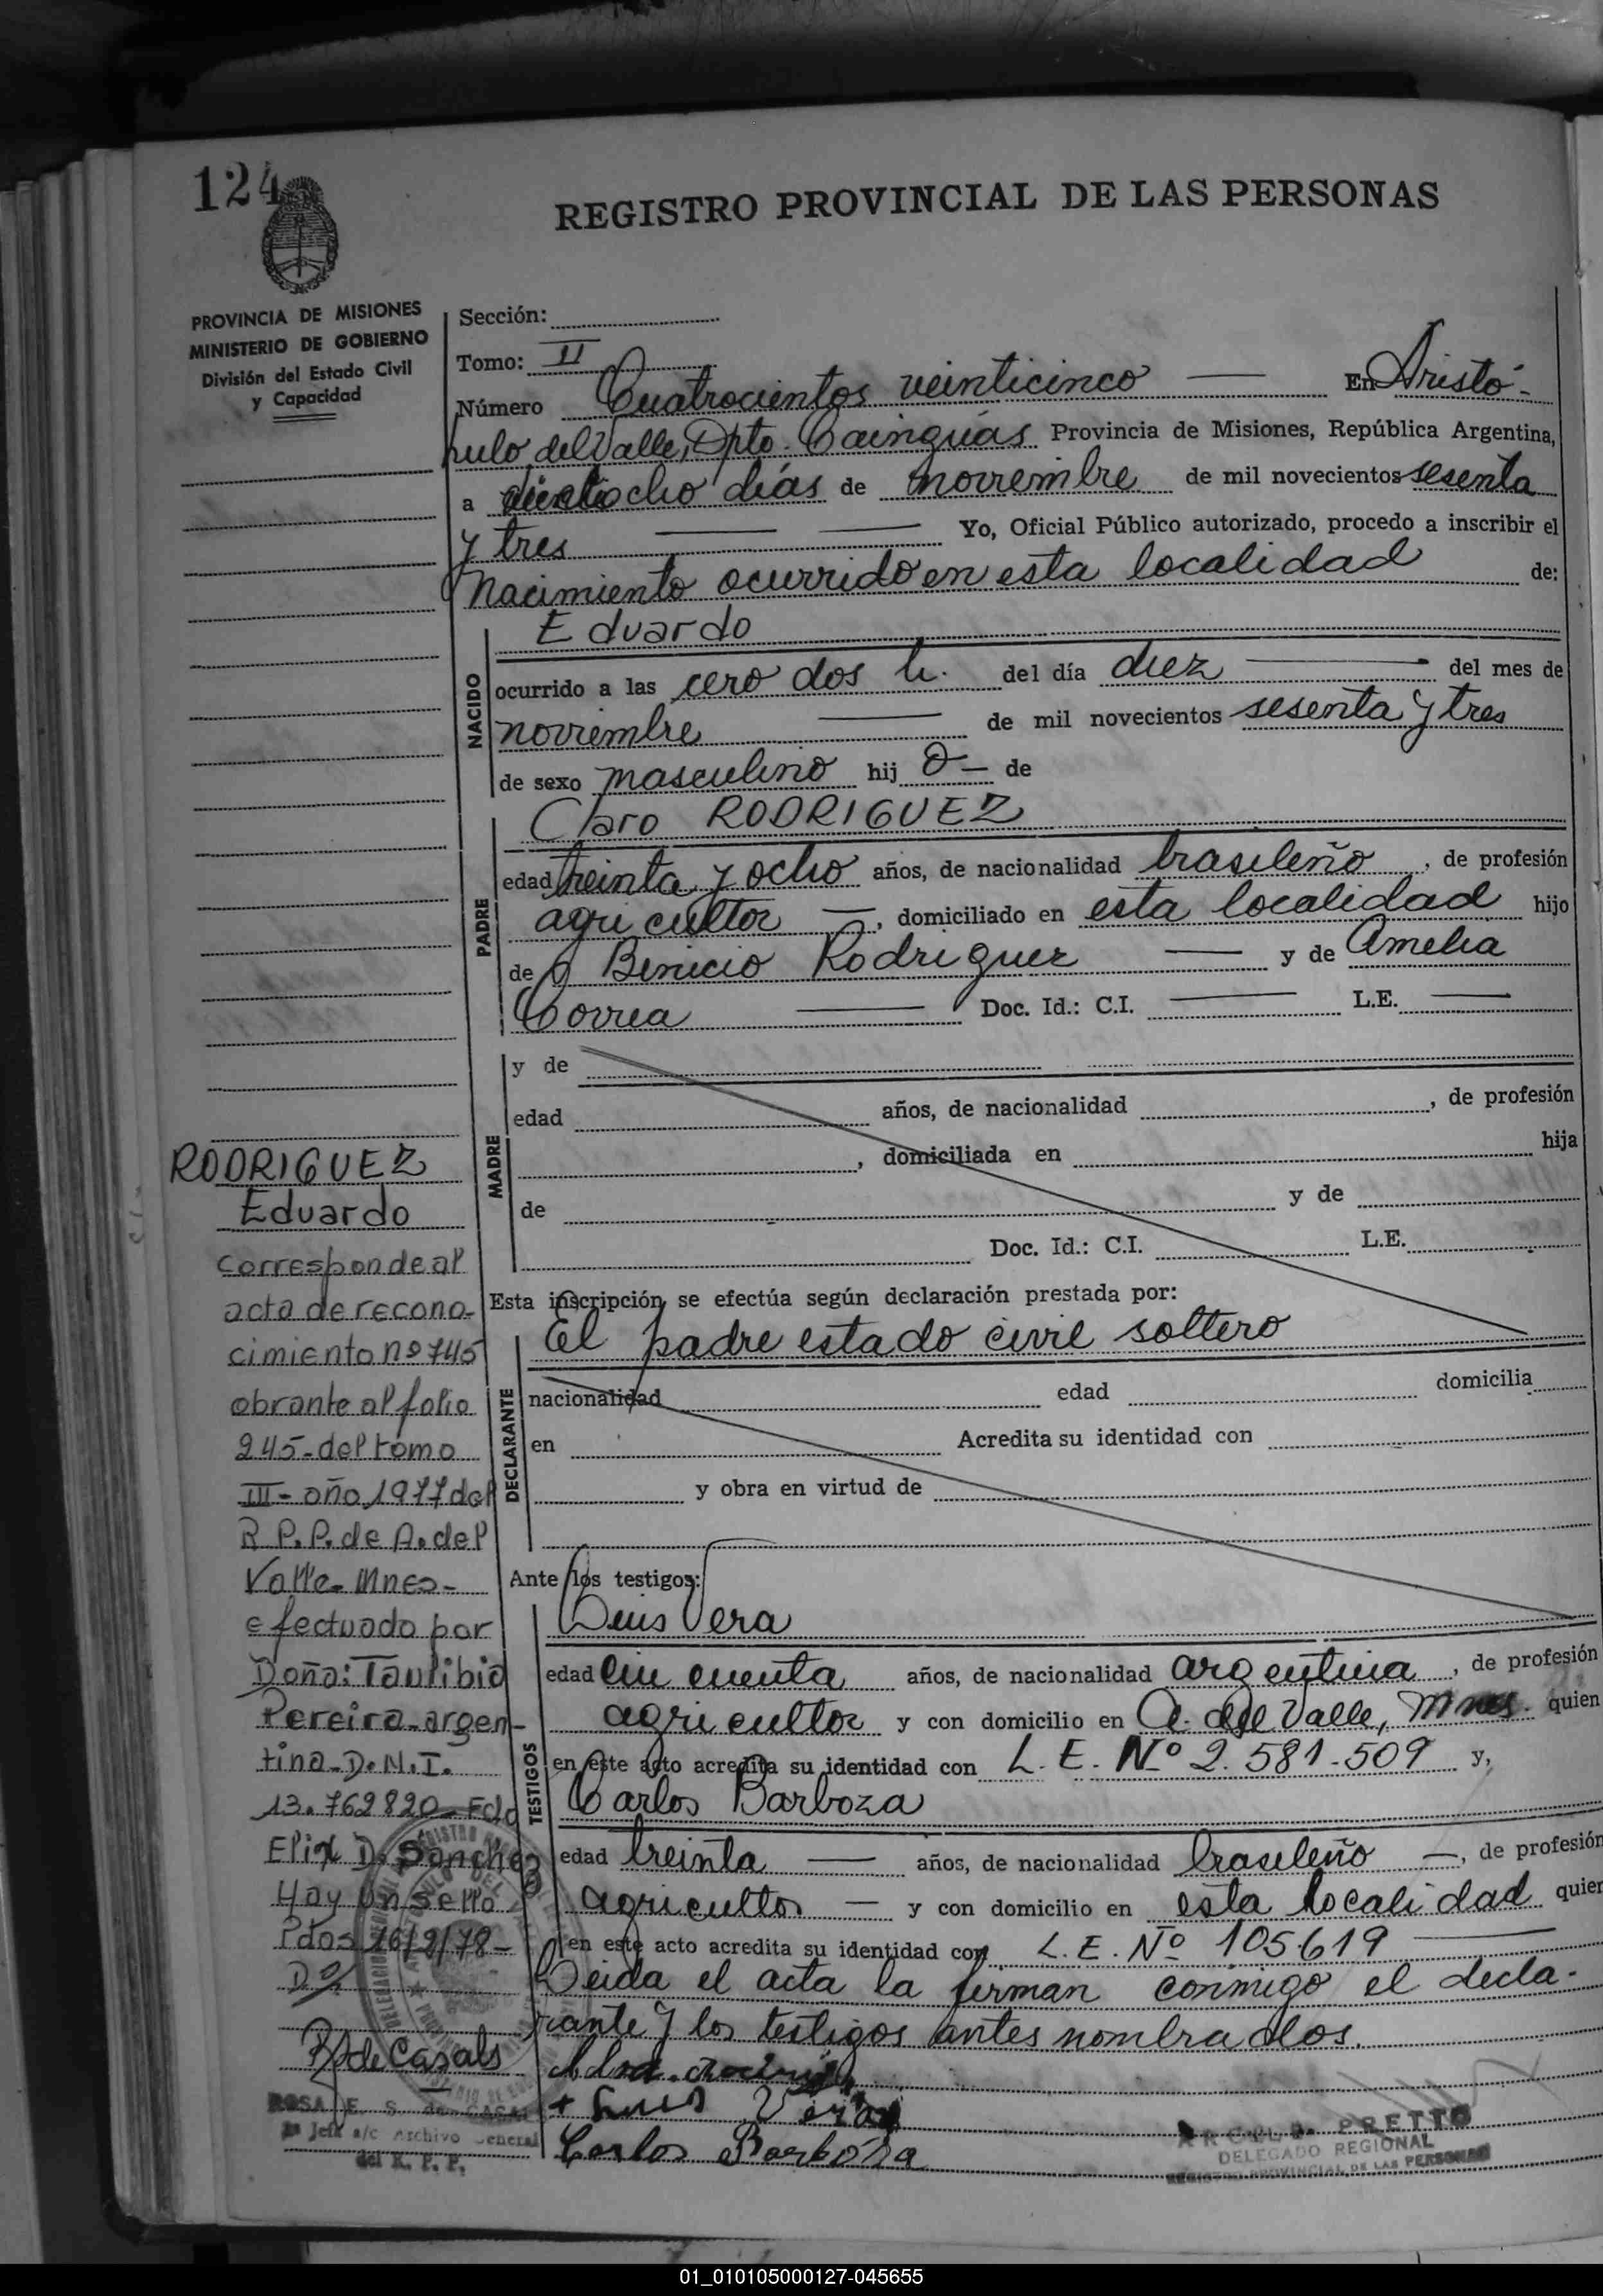 124
REGISTRO PROVINCIAL DE LAS PERSONAS
PROVINCIA DE MISIONES
MINISTERIO DE GOBIERNO
División del Estado Civil
y Capacidad
Sección:
Tomo: II
Número Cuatrocientos veinticinco — En Aristó-
bulo del Valle, Dpto. Cainguás Provincia de Misiones, República Argentina,
a dieciocho días de noviembre de mil novecientos sesenta
y tres — — Yo, Oficial Público autorizado, procedo a inscribir el
Nacimiento ocurrido en esta localidad de:
NACIDO
Eduardo
ocurrido a las cero dos h. del día diez — del mes de
noviembre — de mil novecientos sesenta y tres
de sexo masculino hij o — de
PADRE
Claro RODRIGUEZ
edad treinta y ocho años, de nacionalidad brasileño, de profesión
agricultor —, domiciliado en esta localidad hijo
de Binicio Rodriguez — y de Amelia
Correa — Doc. Id.: C.I. — L.E. —
MADRE
y de
edad años, de nacionalidad , de profesión
, domiciliada en hija
de y de
Doc. Id.: C.I. L.E.
Esta inscripción se efectúa según declaración prestada por:
DECLARANTE
El padre estado civil soltero
nacionalidad edad domicilia
en Acredita su identidad con
y obra en virtud de
Ante los testigos:
TESTIGOS
Luis Vera
edad cincuenta años, de nacionalidad argentina, de profesión
agricultor y con domicilio en A. del Valle, Mnes. quien
en este acto acredita su identidad con L. E. Nº 2.581.509 y,
Carlos Barboza
edad treinta — años, de nacionalidad brasileño —, de profesión
agricultor — y con domicilio en esta localidad quien
en este acto acredita su identidad con L. E. Nº 105.619 —
Leida el acta la firman conmigo el decla-
rante y los testigos antes nombrados.
+ Luis Vera
Carlos Barboza
PRETTO
DELEGADO REGIONAL
REGISTRO PROVINCIAL DE LAS PERSONAS
RODRIGUEZ
Eduardo
Corresponde al
acta de recono-
cimiento nº 745
obrante al folio
245-del tomo
III-año 1977 del
R.P.P. de A. del
Valle-Mnes-
efectuado por
Doña: Taulibia
Pereira-argen-
tina-D.N.I.
13.762820-Fdo
Elix D. Sanchez
Hay un sello
Pdos 16/2/78-
R. de Casals
ROSA E. S. de CASALS
Jefe a/c Archivo General
del R. P. P.
01_010105000127-045655